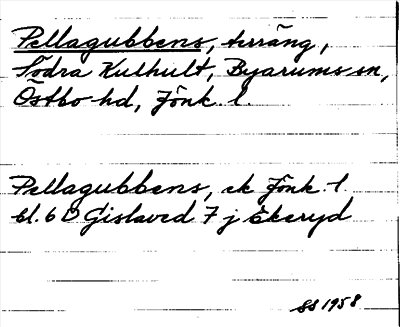 Pellagubbens, terräng,
Södra Kulhult, Byarums sn,
Östbo hd, Jönk. l.
Pellagubbens, ek Jönk. l
bl. 6 D Gislaved 7 j Ekeryd
SS 1958